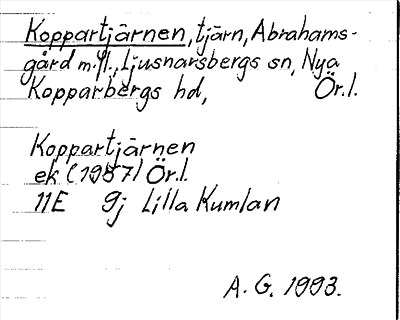 Koppartjärnen, tjärn, Abrahams-
gård m.fl., Ljusnarsbergs sn, Nya
Kopparbergs hd, Ör.l.
Koppartjärnen
ek (1987) Ör.l.
11E 9j Lilla Kumlan
A. G. 1993.